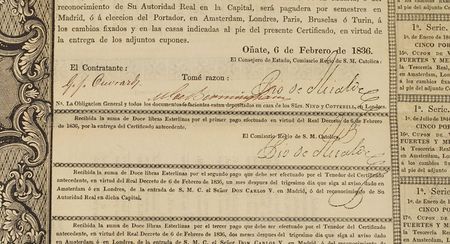 reconocimiento de Su Autoridad Real en la Capital, será pagadera por semestres en
Madrid, ó á eleccion del Portador, en Amsterdam, Londres, Paris, Bruselas ó Turin, á
los cambios fixados y en las casas indicadas al pie del presente Certificado, en virtud de
la entrega de los adjuntos cupones.
Oñate, 6 de Febrero de 1836.
El Consejero de Estado, Comisario Regio de S. M. Catolica:
El Contratante:
Tomé razon:
Nª. La Obligacion General y todos los documentos facientes estan depositados en casa de los SRES. NIND Y COTTERELL, en Londres.
Recibida la suma de Doce libras Esterlinas por el primer pago efectuado en virtud del Real Decreto de 6 de Febrero
de 1836, por la entrega del Certificado antecedente.
El Comisario Regio de S. M. Catolica
Recibida la suma de Doce libras Esterlinas por el segundo pago que debe ser efectuado por el Tenedor del Certificado
antecedente, en virtud del Real Decreto de 6 de Febrero de 1836, un mes despues del trigesimo dia que siga al aviso, dado en
Amsterdam ó en Londres, de la entrada de S. M. C. el Señor DON CARLOS V. en Madrid, ó del reconocimiento de Su
Autoridad Real en dicha Capital.
Recibida la suma de Doce libras Esterlinas por el tercer pago que debe ser efectuado por el Tenedor del Certificado
antecedente, en virtud del Real Decreto de 6 de Febrero de 1836, dos meses despues del trigesimo dia que siga al aviso dado
en Amsterdam ó en Londres, de la entrada de S. M. C. el Señor DON CARLOS V. en Madrid, ó del reconocimiento
1ª. Serie.
1º. de Enero de 18
CINCO POR
CUPON DE
FUERTES Y MED
la Tesoreria Real
en Amsterdam, en
1ª. Serie.
1º. de Julio de 184
CINCO POR
CUPON DE
FUERTES Y MED
Tesoreria Real,
Amsterdam, en L
1ª. Serie.
1º. de Enero de 184
CINCO POR
CUPON DE
FUERTES Y MED
la Tesoreria Real
en Amsterdam, en